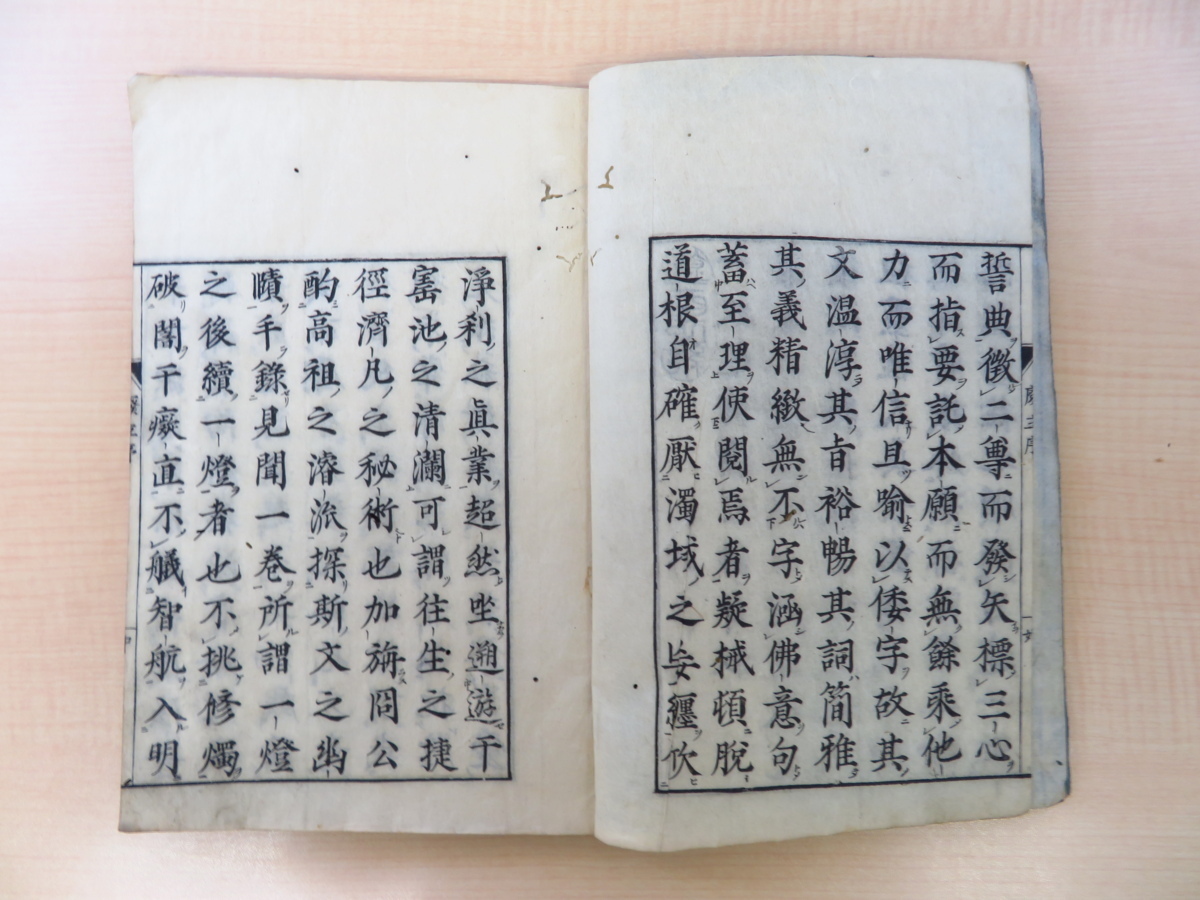 誓典徴二尊而發矢標三心
而指要託本願而無餘乘他
力而唯信且喻以倭字故其
文温淳其旨裕暢其詞簡雅
其義精緻無不字涵佛意句
蓄至理使閲焉者疑械頓脫
道根自確厭濁域之妄纒欣
淨刹之眞業超然坐遡遊于
寳池之清瀾可謂往生之捷
徑濟凡之秘術也加旃同公
酌高祖之濬流探斯文之幽
賾手錄見聞一卷所謂一燈
之後續一燈者也不挑修燭
破闇千癡直不艤智航入明